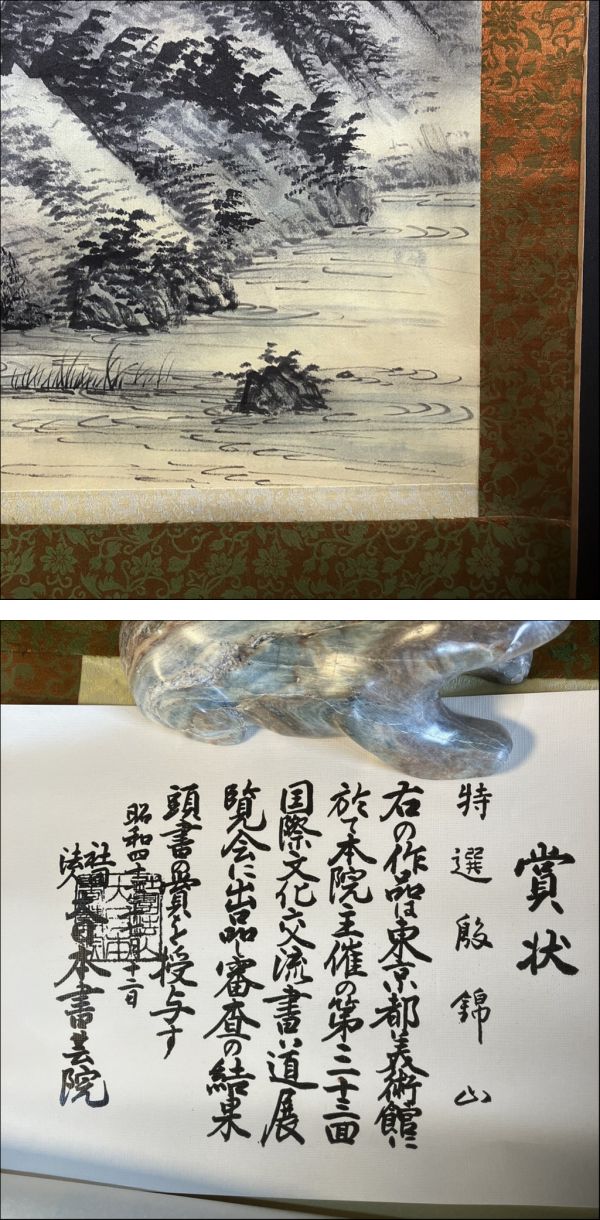 賞状
特選 殷錦山
右の作品は東京都美術館に
於て本院主催の第二十三回
国際文化交流書道展
覧会に出品し審査の結果
頭書の賞を授与す
昭和四十 年 月 十二日
社団
法人 大日本書芸院